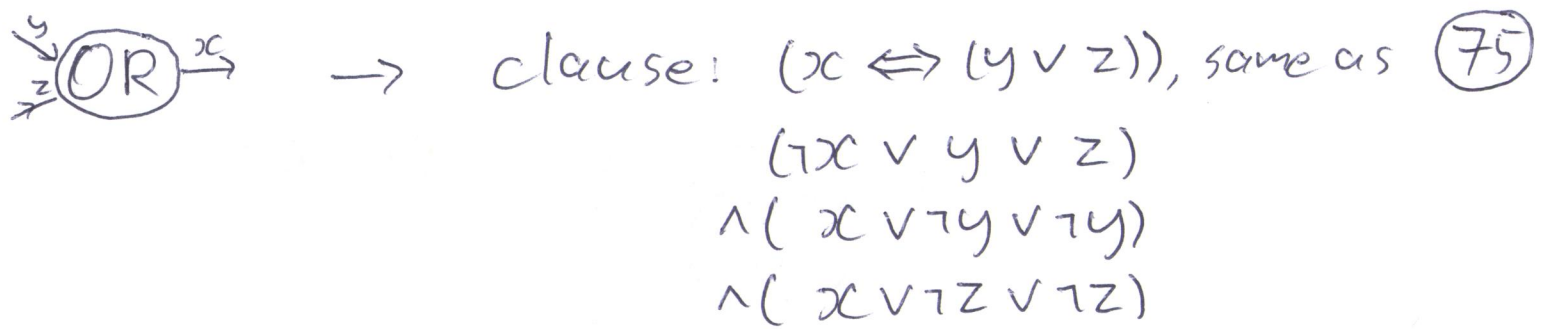 y z OR x → clause: (x ⇔ (y ∨ z)), same as 75
(¬x ∨ y ∨ z)
∧( x ∨ ¬y ∨ ¬y)
∧( x ∨ ¬z ∨ ¬z)